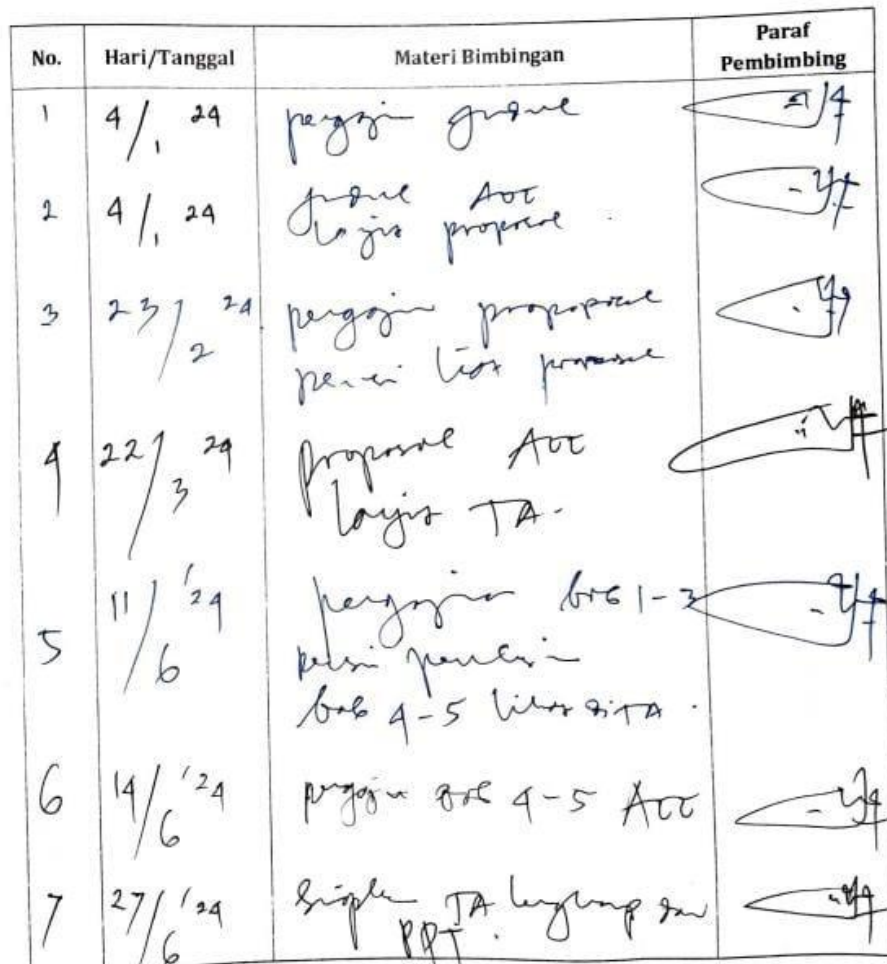 No. Hari/Tanggal Materi Bimbingan Paraf Pembimbing
1 4/1 24 pengajuan judul
2 4/1 24 judul ACC
lanjut proposal.
3 23/2 24 pengajuan propoposal
lihat proposal
4 22/3 24 proposal ACC
lanjut TA.
5 11/6 '24 pengajuan bab 1-3
bab 4-5 lihat di TA.
6 14/6 '24 pengajuan bab 4-5 ACC
7 27/6 '24 siapkan TA lengkap dan
PPT.